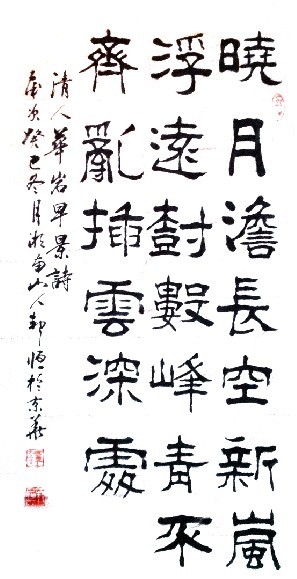 曉月澹長空新嵐
浮遠樹數峰青不
齊亂插雲深處
清人華岩早景詩
歲次癸巳冬月山人於京華